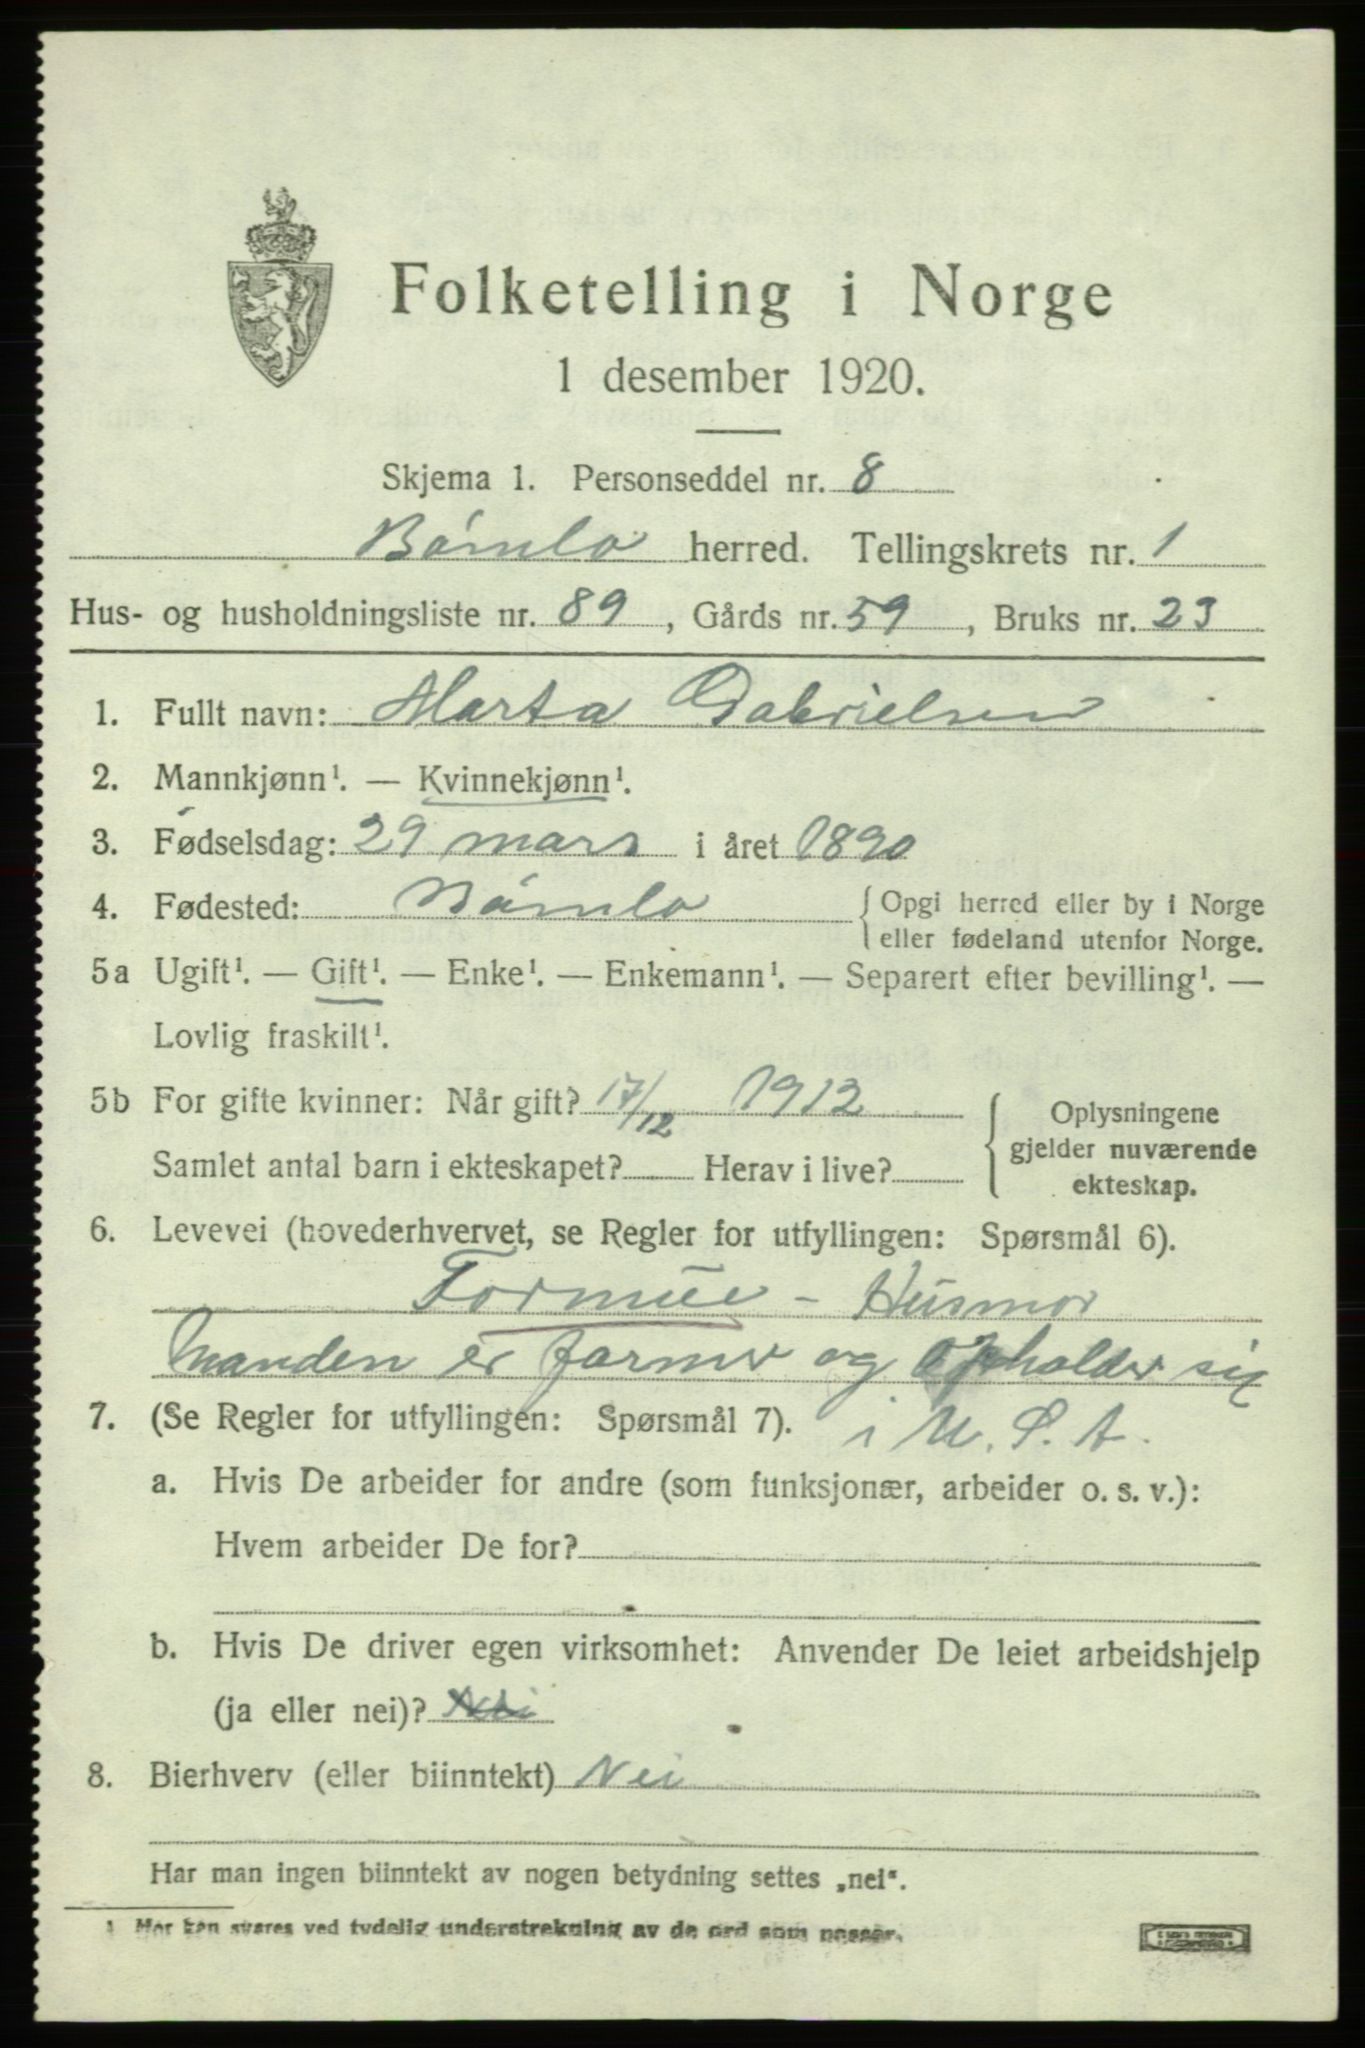 Folketelling i Norge
1 desember 1920.
Skjema 1. Personseddel nr. 8
Bömlo herred. Tellingskrets nr. 1
Hus- og husholdningsliste nr. 89, Gårds nr. 59, Bruks nr. 23
1. Fullt navn: Marta Gabrielsen
2. Mannkjønn¹. — Kvinnekjønn¹.
3. Fødselsdag: 29 mars i året 1890
4. Fødested: Bömlo { Opgi herred eller by i Norge
eller fødeland utenfor Norge.
5a Ugift¹. — Gift¹. — Enke¹. — Enkemann¹. — Separert efter bevilling¹. —
Lovlig fraskilt¹.
5b For gifte kvinner: Når gift? 17/12 1912
Samlet antal barn i ekteskapet? Herav i live?
Oplysningene
gjelder nuværende
ekteskap.
6. Levevei (hovederhvervet, se Regler for utfyllingen: Spørsmål 6).
Formue - Husmor
Manden er farmer og opholder sig
i U. S. A.
7. (Se Regler for utfyllingen: Spørsmål 7).
a. Hvis De arbeider for andre (som funksjonær, arbeider o. s. v.):
Hvem arbeider De for?
b. Hvis De driver egen virksomhet: Anvender De leiet arbeidshjelp
(ja eller nei)? Nei
8. Bierhverv (eller biinntekt) Nei
Har man ingen biinntekt av nogen betydning settes „nei“.
1 Her kan svares ved tydelig understrekning av de ord som passer.